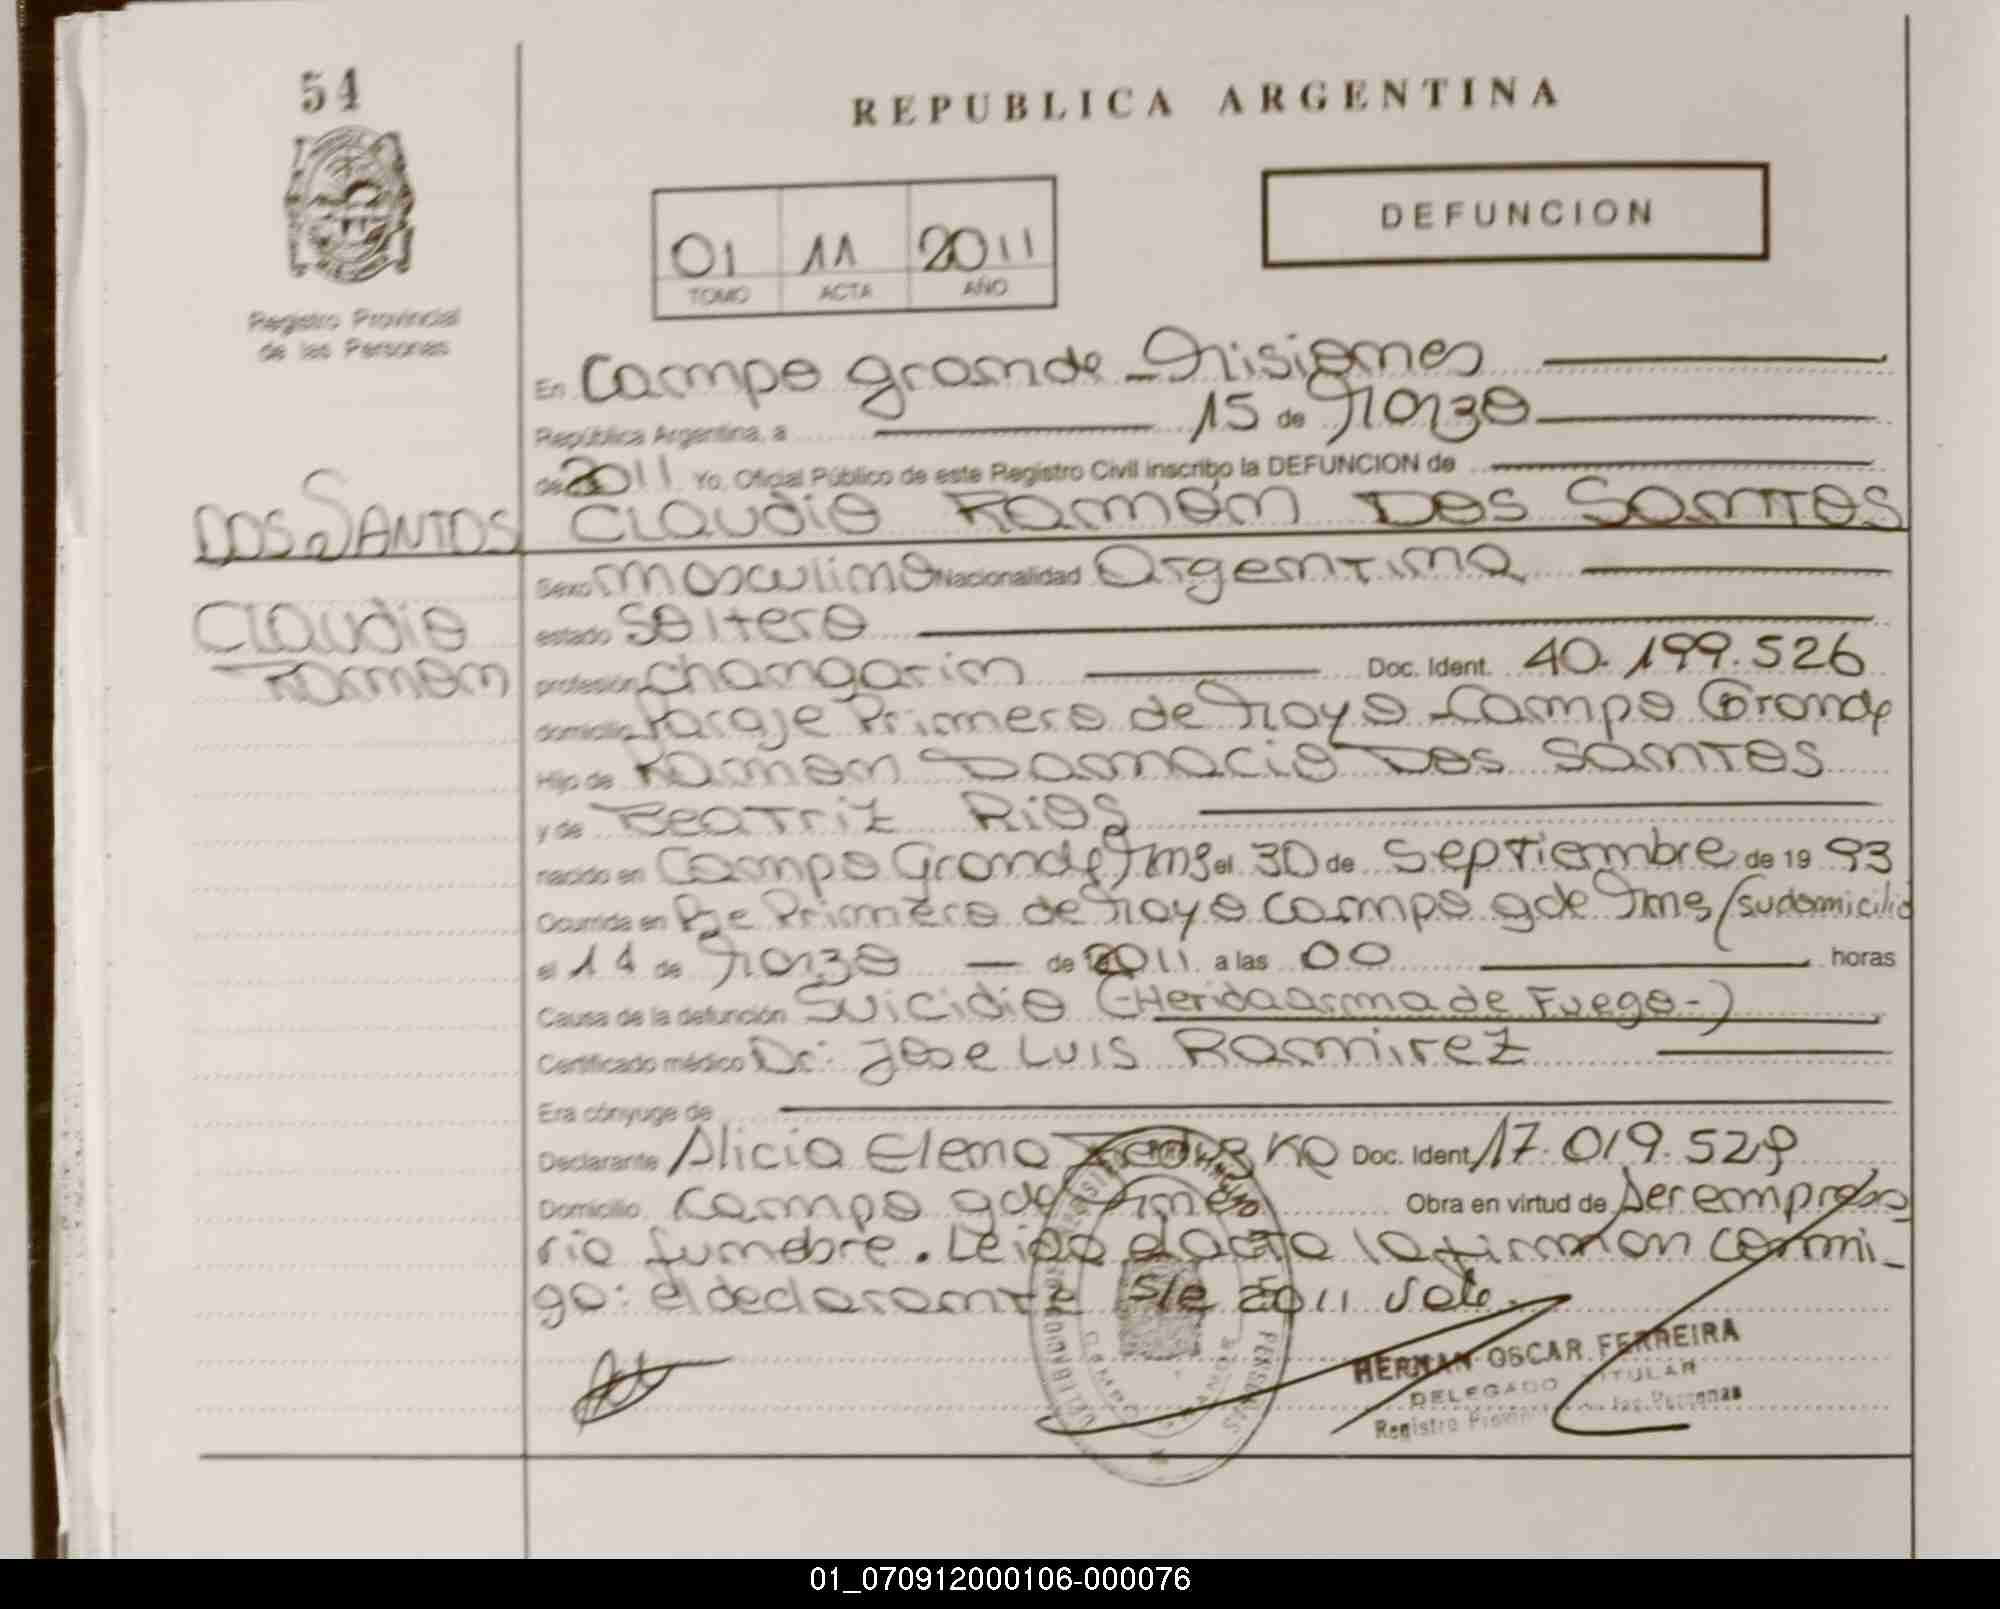 54
REPUBLICA ARGENTINA
DEFUNCION
01 11 2011
TOMO ACTA AÑO
Registro Provincial
de las Personas
En Campo grande - Misiones
República Argentina, a 15 de Marzo
de 2011 Yo, Oficial Público de este Registro Civil inscribo la DEFUNCION de
DOS SANTOS Claudio Ramón Dos Santos
Sexo masculino Nacionalidad Argentina
Claudio estado Soltero
Ramon profesión changarin Doc. Ident. 40.199.526
domicilio Paraje Primero de Mayo - Campo Grande
Hijo de Ramon Damacio Dos Santos
y de Beatriz Rios
nacido en Campo Grande, Mns el 30 de Septiembre de 19 93
Ocurrida en Pje Primero de Mayo campo gde Mns (su domicilio
el 14 de Marzo de 2011 a las 00 horas
Causa de la defunción Suicidio (-Herida arma de Fuego-)
Certificado médico Dr: Jose Luis Ramirez
Era cónyuge de
Declarante Alicia Elena Doc. Ident. 17.019.529
Domicilio Campo gde Mnes Obra en virtud de ser empresa
rio funebre. Leida el acta la firman conmi-
go: el declarante s/e 2011 vale.
HERNAN OSCAR FERREIRA
DELEGADO TITULAR
Registro Personas
01_070912000106-000076